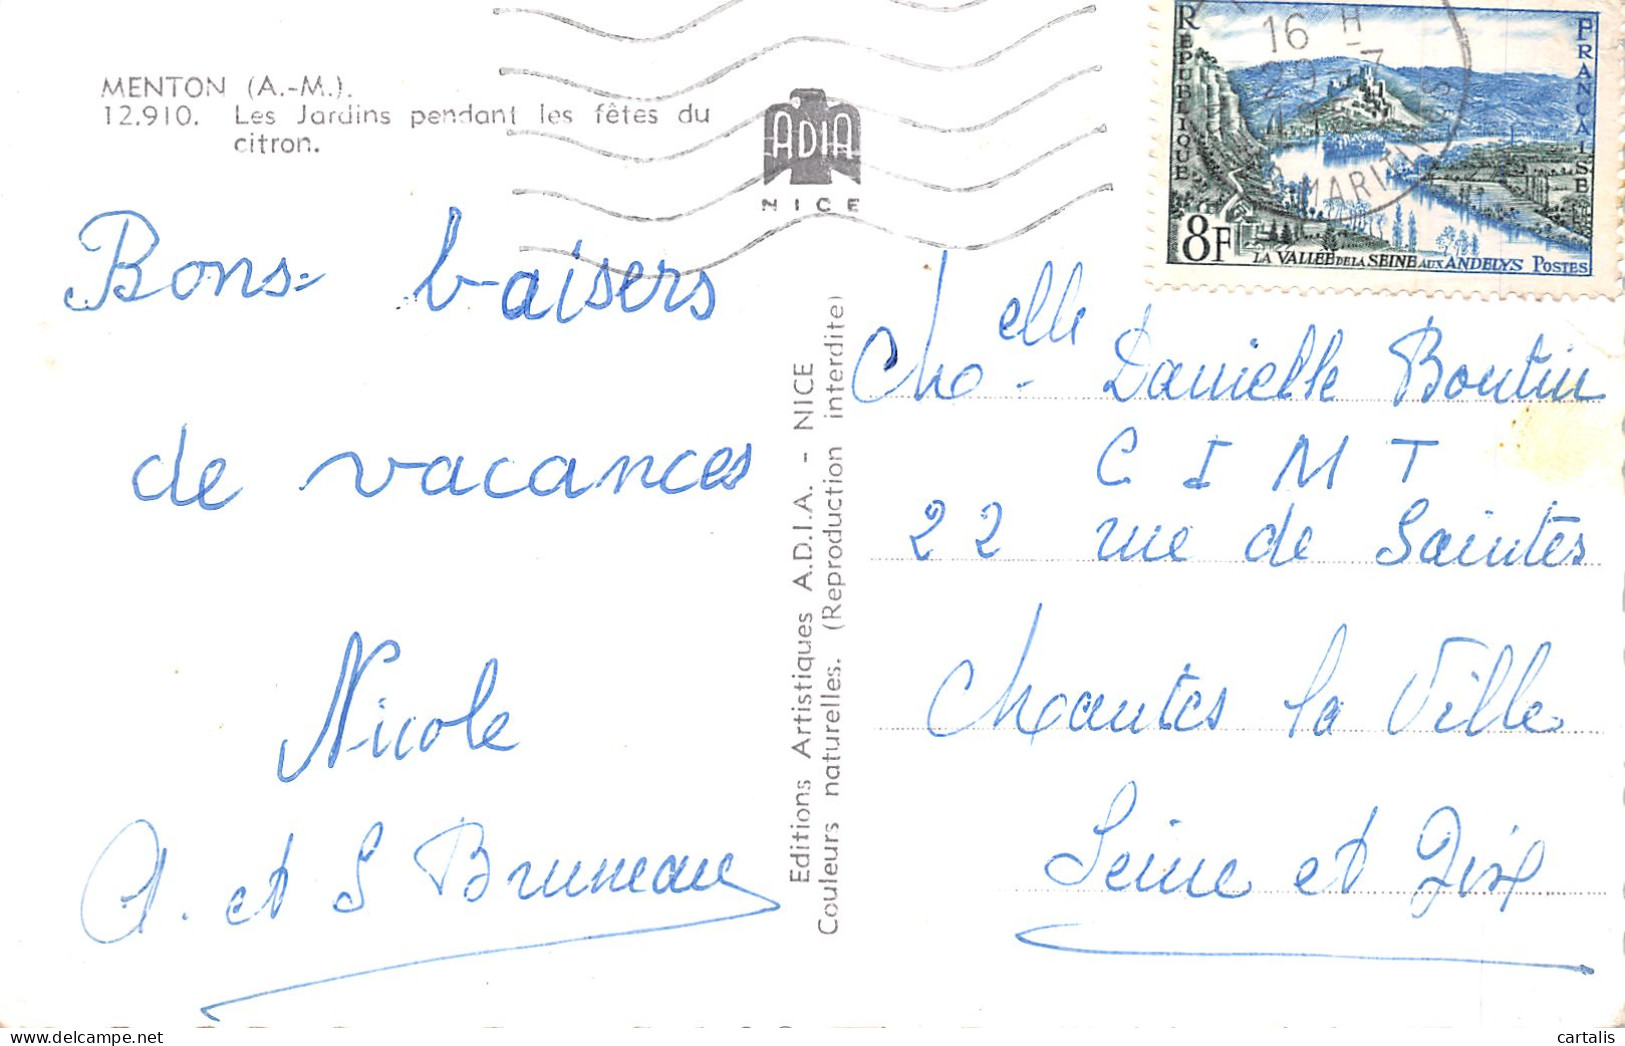 MENTON (A.-M.).
12.910. Les Jardins pendant les fêtes du
citron.
ADIA
NICE
RÉPUBLIQUE
FRANÇAISE
8F
LA VALLÉE DE LA SEINE AUX ANDELYS POSTES
16 H
29 - 7
MARITIMES
Bons baisers
de vacances
Nicole
A. et S Bruneau
Editions Artistiques A.D.I.A. - NICE
Couleurs naturelles. (Reproduction interdite)
Melle Danielle Boutin
C I M T
22 rue de Saintes
Mantes la Ville
Seine et Oise
cartalis